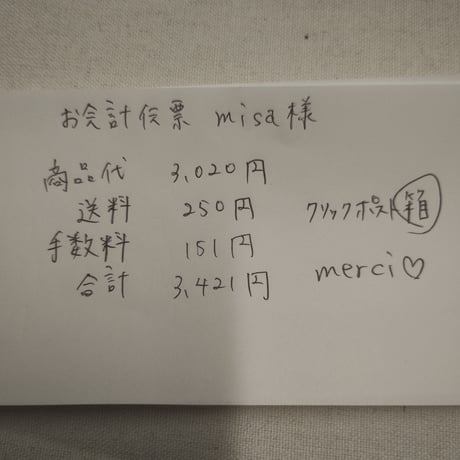 お会計伝票 misa様
商品代 3,020円
送料 250円
手数料 151円
合計 3,421円
クリックポスト箱
merci♡